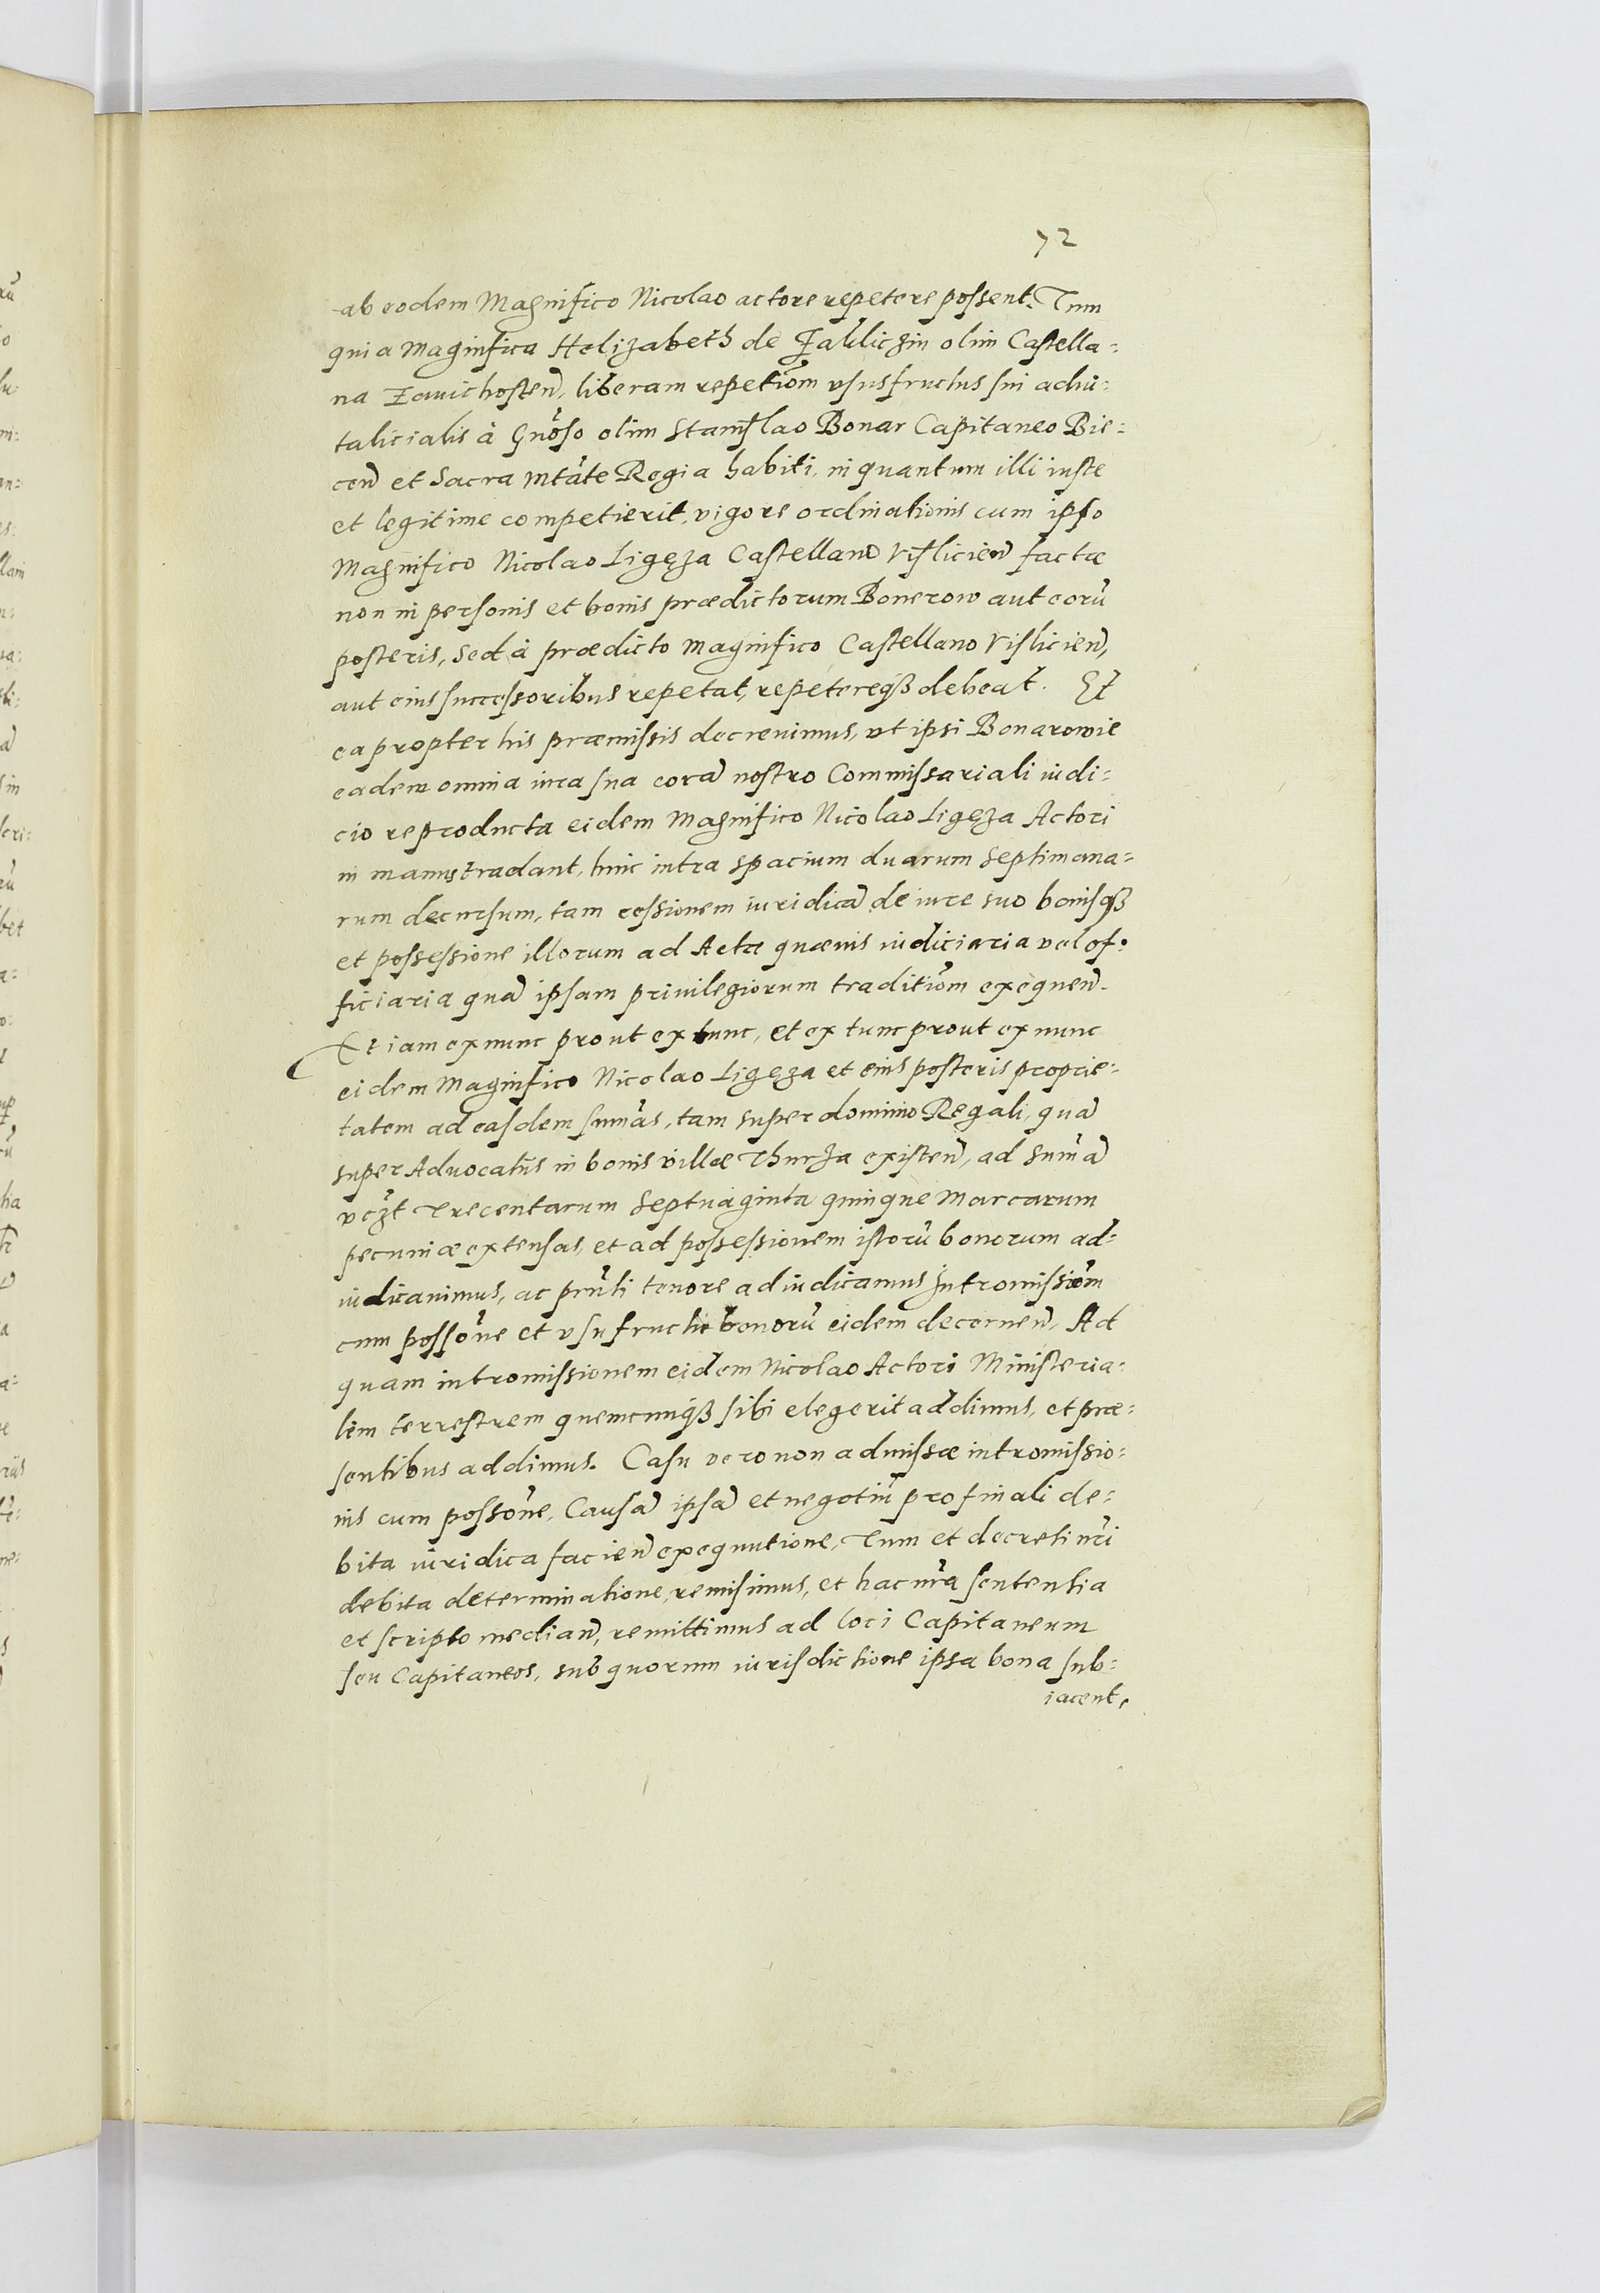 72
ab eodem Magnifico Nicolao actore repetere possent. Tum
quia Magnifica Helizabeth de Zakliczin olim Castella:
na Zavichosten, liberam repetiom vsusfructus sui advi:
talicialis à Gnoso olim Stanislao Bonar Capitaneo Bie:
cen et Sacra Mtate Regia habiti, inquantum illi iuste
et legitime competierit, vigore ordinationis cum ipso
Magnifico Nicolao Ligęza Castellano Vislicien factæ
non in personis et bonis prædictorum Bonerow aut eorū
posteris, sed à prædicto Magnifico Castellano Vislicien,
aut eius successoribus repetat, repetereqꝫ debeat. Et
ea propter his præmissis decrevimus, vt ipsi Bonarowie
eadem omnia iura sua corā nostro Commissariali iudi:
cio reproducta eidem Magnifico Nicolao Ligęza Actori
in manus tradant, hinc intra spacium duarum septimana:
rum decursum, tam cessionem iuridicā de iure suo bonisqꝫ
et possessione illorum ad Acta quævis iudiciaria vel of:
ficiaria quā ipsam privilegiorum traditiom exequen.
Et iam ex nunc prout ex tunc, et ex tunc prout ex nunc
eidem Magnifico Nicolao Ligęza et eius posteris proprie:
tatem ad easdem sumās, tam super dominio Regali, quā
super Advocatūs in bonis villæ Thurza existen, ad sumā
vczt Trecentarum septuaginta quinque Marcarum
pecuniæ extensas, et ad possessionem istorū bonorum ad:
iudicavimus, ac pnti tenore adiudicamus Intromissiom
cum possone et vsufructu bonorū eidem decernen, Ad
quam intromissionem eidem Nicolao Actori Ministeria:
lem terrestrem quemcunqꝫ sibi elegerit addimus, et præ:
sentibus addimus. Casu vero non admissæ intromissio:
nis cum possone, Causā ipsā et negotiū pro finali de:
bita iuridica facien exequutione, Tum et decreti nri
debita determinatione, remisimus, et hac nra sententia
et scripto median, remittimus ad loci Capitaneum
seu Capitaneos, sub quorum iurisdictione ipsa bona sub:
iacent,